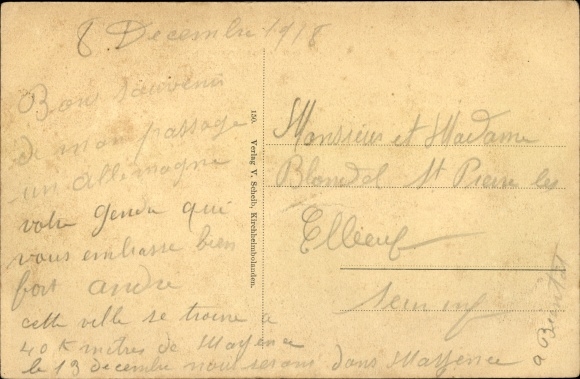 8 Decembre 1918
Bons Souvenir
de mon passage
en Allemagne
votre gendre qui
vous embrasse bien
fort andré
cette ville se trouve a
40 K mètres de Mayence
le 13 decembre nous serons dans Mayence
150. Verlag V. Scheib, Kirchheimbolanden.
Monsieur et Madame
Blondel St Pierre les
Elbeuf
Seine inf
a Bientot